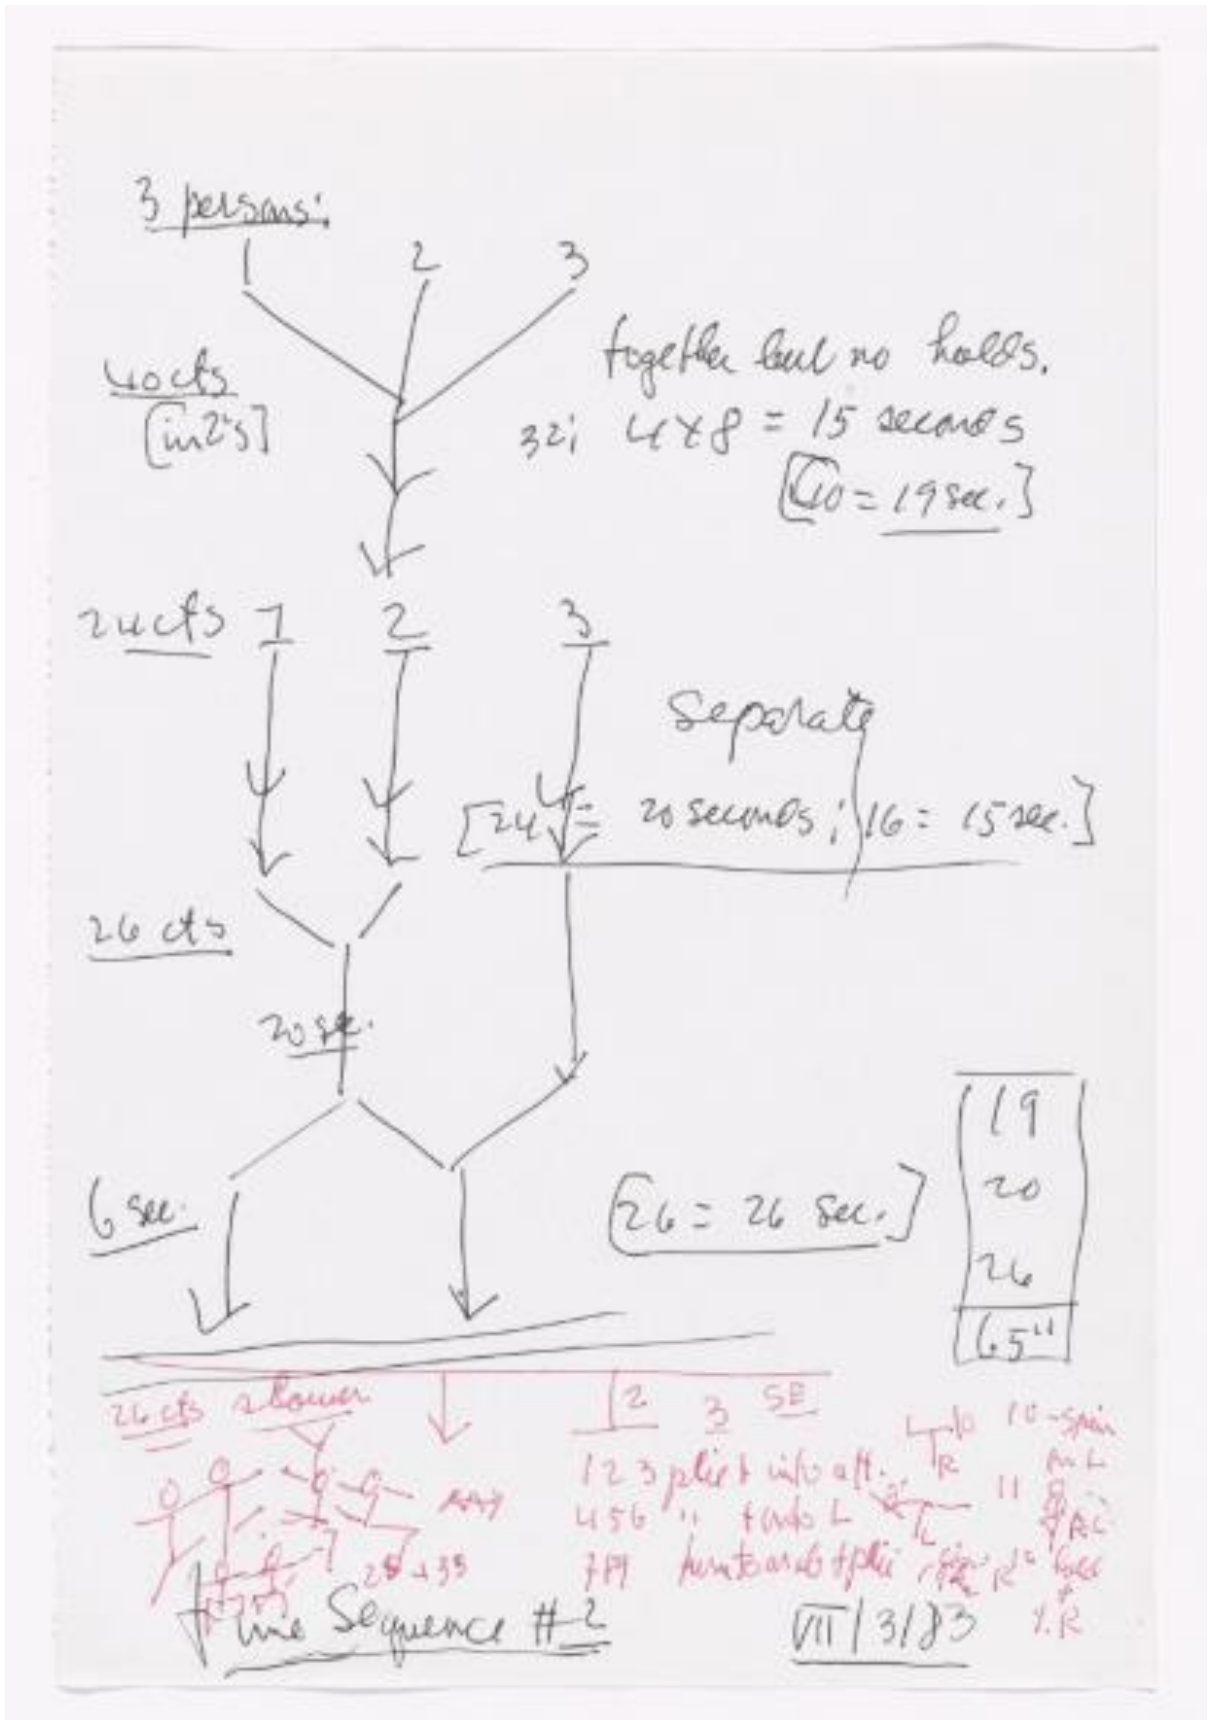 3 persons:
1 2 3
40 cts
[in 2's]
together but no holds.
32; 4x8 = 15 seconds
[40 = 19 sec.]
24 cts 1 2 3
separate
[24 = 20 seconds; 16 = 15 sec.]
26 cts
20 sec.
6 sec.
[26 = 26 sec.]
19
20
26
65"
26 cts slower
2 3 SE
L R 10-spin
1 2 3 plié + into att. on L
4 5 6 " L "
7 8 9 turn to arab + plié
Time Sequence #2
VII/3/83